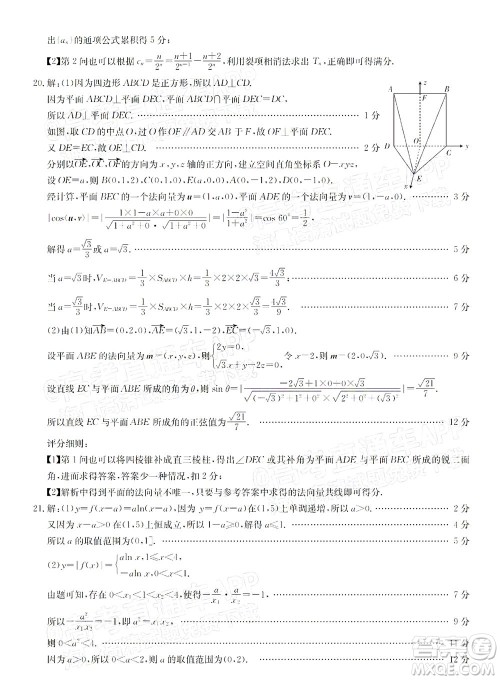 出{aₙ}的通项公式累积得5分;
【2】第2问也可以根据cₙ=n/2ⁿ=(n+1)/2ⁿ⁻¹-(n+2)/2ⁿ,利用裂项相消法求出Tₙ,正确即可得分.
20.解:(1)因为四边形ABCD是正方形,所以AD⊥CD.
因为平面ABCD⊥平面DEC,平面ABCD∩平面DEC=DC,
所以AD⊥平面DEC. 1分
如图,取CD的中点O,过O作OF∥AD交AB于F,则OF⊥平面DEC.
又DE=EC,所以OE⊥DC. 2分
分别以OE,OC,OF的方向为x,y,z轴的正方向,建立空间直角坐标系O-xyz,
设OE=a,则E(a,0,0),B(0,1,2),C(0,1,0),A(0,-1,2),D(0,-1,0).
经计算,平面BEC的一个法向量为u=(1,a,0),平面ADE的一个法向量为v=(1,-a,0). 3分
|cos⟨u,v⟩|=|(1×1-a×a+0×0)/(√(1²+a²+0²)·√(1²+a²+0²))|=|(1-a²)/(1+a²)|=cos 60°=1/2,
解得a=√3/3或a=√3. 5分
当a=√3时,V_{E-ABCD}=1/3×S_{ABCD}×h=1/3×2×2×√3=4√3/3; 6分
当a=√3/3时,V_{E-ABCD}=1/3×S_{ABCD}×h=1/3×2×2×√3/3=4√3/9. 7分
(2)由(1)知AB=(0,2,0),AE=(√3,1,-2).
设平面ABE的法向量为m=(x,y,z),则{2y=0, 令 9分
设直线EC与平面ABE所成的角为θ,则sin θ= =√21/7.
所以直线EC与平面ABE所成角的正弦值为√21/7. 12分
评分细则:
【1】第1问也可以将四棱锥补成直三棱柱,得出∠DEC或其补角为平面ADE与平面BEC所成的锐二面角,进而求得答案,答案少一种情况,扣2分;
【2】解析中得到平面的法向量不唯一,只要与参考答案中求的法向量共线即可得分.
21.解:(1)y=f(x)=aln(x-a)在(1,5)上单调递增,所以a>0. 2分
又因为x-a>0在(1,5)恒成立,所以a≤1. 3分
所以a的取值范围为(0,1]. 4分
(2)y=|f(x)|= 6分
由题可知,0<x₁<1<x₂,且-a/x₁·a/x₂=-1, 8分
9分
则0<a²<
因为a>0,所以a的取值范围为(0,2). 12分